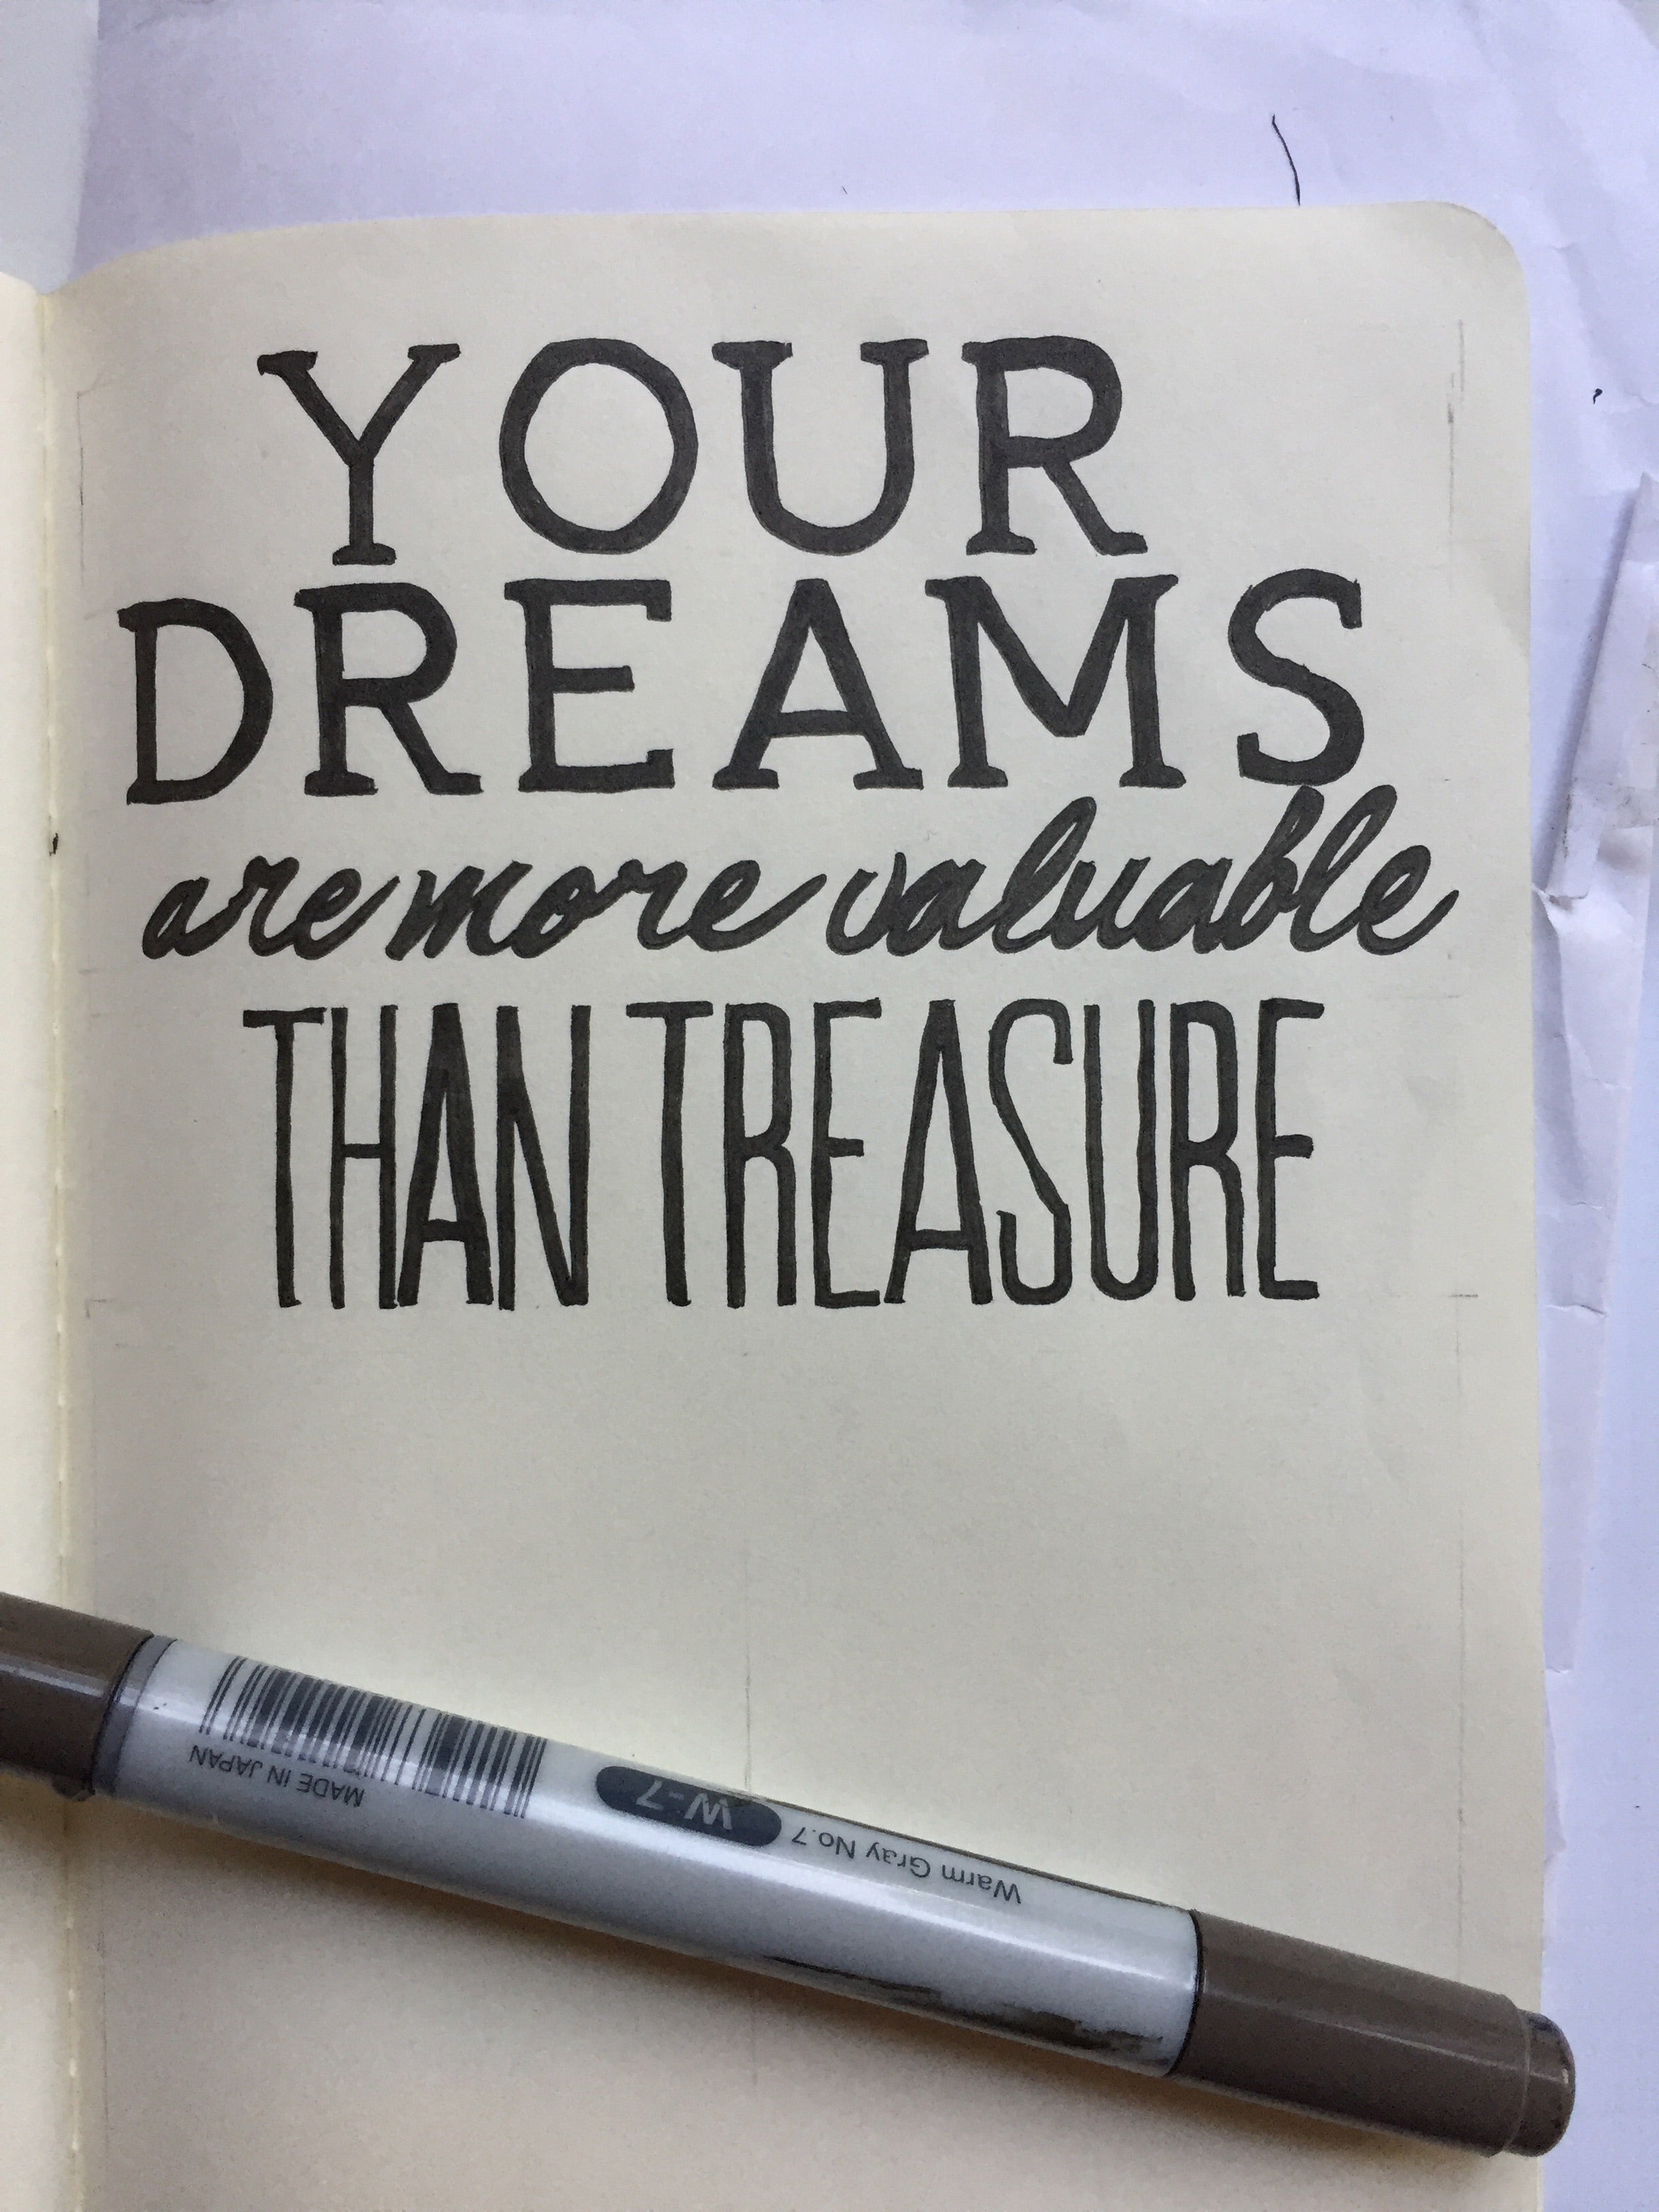 YOUR
DREAMS
are more valuable
THAN TREASURE
MADE IN JAPAN
W-7
Warm Gray No.7